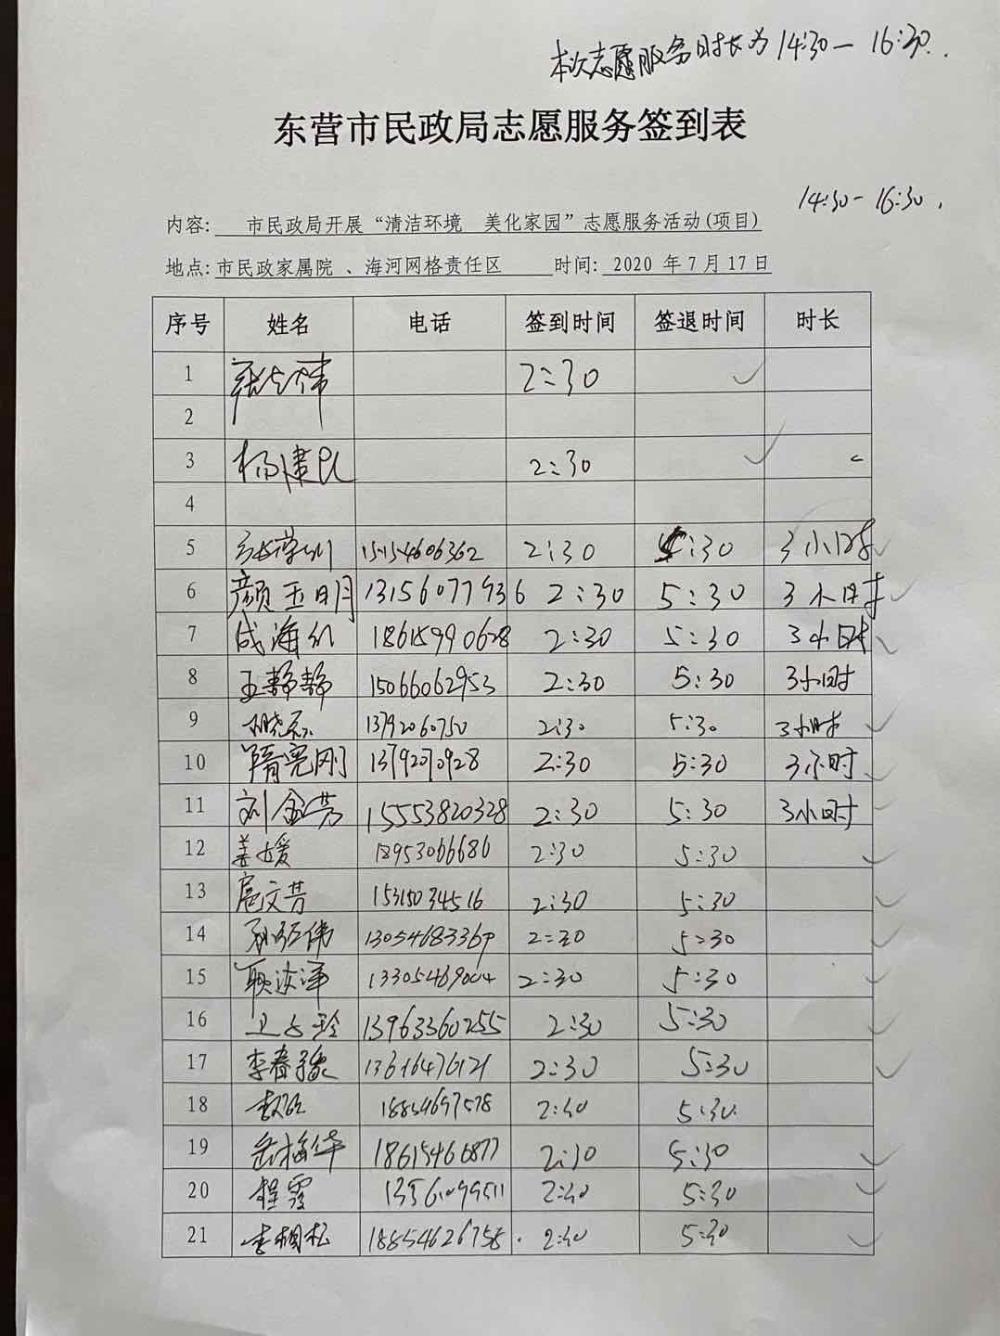 本次志愿服务时长为 14:30— 16:30.
东营市民政局志愿服务签到表
14:30-16:30.
内容: 市民政局开展“清洁环境 美化家园”志愿服务活动(项目)
地点: 市民政家属院 、海河网格责任区 时间: 2020 年 7 月 17 日
序号 姓名 电话 签到时间 签退时间 时长
1 2:30
2
3 杨建民 2:30
4
5 15154606362 2:30 5:30 3小时
6 颜玉明 13156077936 2:30 5:30 3小时
7 成海红 18615990628 2:30 5:30 3小时
8 王静静 15066062953 2:30 5:30 3小时
9 13792060750 2:30 5:30 3小时
10 隋亮刚 13792070928 2:30 5:30 3小时
11 刘金芳 15553820328 2:30 5:30 3小时
12 姜媛 18953066686 2:30 5:30
13 扈文芳 15315034516 2:30 5:30
14 2:30 5:30
15 13305469004 2:30 5:30
16 13963360255 2:30 5:30
17 李春豫 2:30 5:30
18 2:30 5:30
19 岳梅华 18615466877 2:30 5:30
20 程霞 2:30 5:30
21 李桐松 18854626758 2:30 5:30